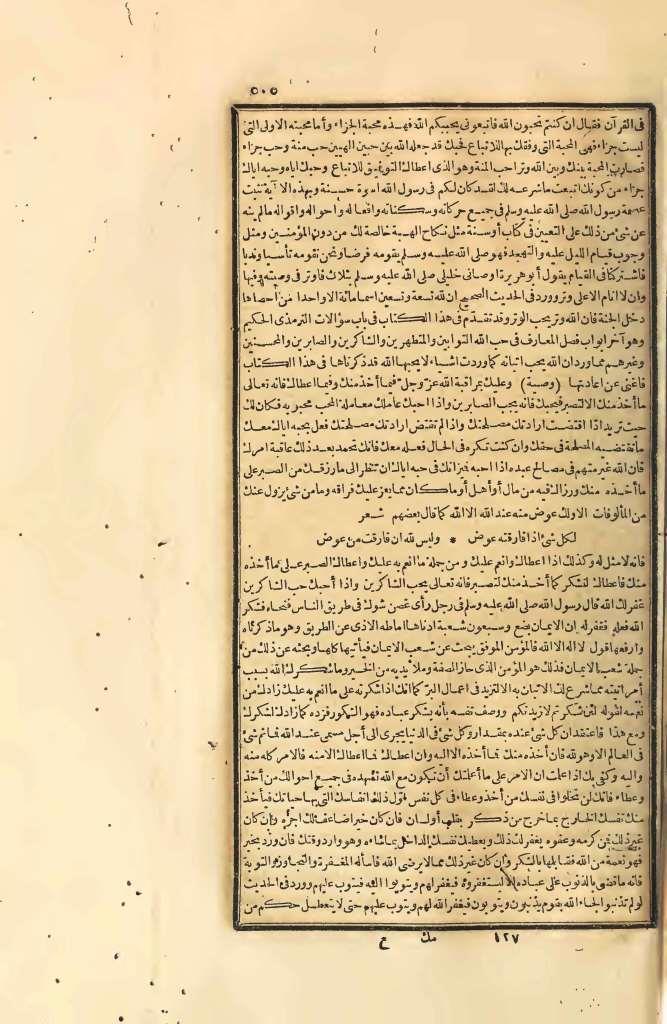 ٥٠٥
فى القرآن فقال ان كنتم تحبون الله فاتبعونى يحببكم الله فهذه محبة الجزاء وأما محبته الاولى التى
ليست جزاء فهى المحبة التى وفقك بها للاتباع فحبك قد جعله الله بين حبين الهيين حب منة وحب جزاء
فصارت المحبة بينك وبين الله وتر احب المنة وهو الذى اعطاك التوفيق للاتباع وحبك اياه وحبه اياك
جزاء من كونك اتبعت ماشرعه لك لقد كان لكم فى رسول الله اسوة حسنة وبهذه الآية ثبتت
عصمة رسول الله صلى الله عليه وسلم فى جميع حركاته وسكناته وافعاله واحواله واقواله مالم ينه
عن شئ من ذلك على التعيين فى كتاب أوسنة مثل نكاح الهبة خالصة لك من دون المؤمنين ومثل
وجوب قيام الليل عليه والتهجد فهو صلى الله عليه وسلم يقومه فرضا ونحن نقومه تأسيا وندبا
فاشتركنا فى القيام يقول أبو هريرة اوصانى خليلى صلى الله عليه وسلم بثلاث فاوتر فى وصيته وفيها
وان لا انام الا على وتر وورد فى الحديث الصحيح ان لله تسعة وتسعين اسما مائة الاواحدا من أحصاها
دخل الجنة فان الله وتر يحب الوتر وقد تقدم فى هذا الكتاب فى باب سؤالات الترمذى الحكيم
وهو آخر ابواب فصل المعارف فى حب الله التوابين والمتطهرين والشاكرين والصابرين والمحسنين
وغيرهم مما ورد ان الله يحب اتيانه كما وردت اشياء لا يحبها الله قد ذكرناها فى هذا الكتاب
فاغنى عن اعادتها (وصية) وعليك بمراقبة الله عز وجل فيما أخذ منك وفيما اعطاك فانه تعالى
ما أخذ منك الا لتصبر فيحبك فانه يحب الصابرين واذا احبك عاملك معاملة المحب محبوبه فكان لك
حيث تريد اذا اقتضت ارادتك مصلحتك واذا لم تقتض ارادتك مصلحتك فعل بحبه اياك معك
ما تقتضيه المصلحة فى حقك وان كنت تكره فى الحال فعله معك فانك تحمد بعد ذلك عاقبة امرك
فان الله غير متهم فى مصالح عبده اذا احبه فميزانك فى حبه اياك ان تنظر الى ما رزقك من الصبر على
ما أخذه منك ورزاك فيه من مال أو أهل أو ما كان مما يعز عليك فراقه وما من شئ يزول عنك
من المألوفات الا ولك عوض منه عند الله الا الله كما قال بعضهم شعر
لكل شئ اذا فارقته عوض * وليس لله ان فارقت من عوض
فانه لا مثل له وكذلك اذا اعطاك وانعم عليك ومن جملة ما انعم به عليك واعطاك الصبر على ما أخذه
منك فاعطاك لتشكر كما أخذ منك لتصبر فانه تعالى يحب الشاكرين واذا أحبك حب الشاكرين
غفر لك الله قال رسول الله صلى الله عليه وسلم فى رجل رأى غصن شوك فى طريق الناس فنحاه فشكر
الله فعله فغفر له ان الايمان بضع وسبعون شعبة ادناها اماطة الاذى عن الطريق وهو ما ذكرناه
وارفعها قول لا اله الا الله فالمؤمن الموفق يبحث عن شعب الايمان فيأتيها كلها وبحثه عن ذلك من
جملة شعب الايمان فذلك هو المؤمن الذى حاز الصفة وملأ يديه من الخير وما شكرك الله بسبب
أمر اتيته مما شرع لك الاتيان به الا لتزيد فى اعمال البر كما انك اذا شكرته على ما انعم به عليك زادك من
نعمه لقوله لئن شكرتم لازيدنكم ووصف نفسه بأنه يشكر عباده فهو الشكور فزده كما زادك لشكرك
ومع هذا فاعتقد ان كل شئ عنده بمقدار وكل شئ فى الدنيا يجرى الى أجل مسمى عند الله فما ثم شئ
فى العالم الا وهو لله فان أخذه منك فما أخذه الا اليه وان اعطاك فما اعطاك الا منه فالامر كله منه
واليه وكفى بك اذا علمت ان الامر على ما أعلمتك أن تكون مع الله تشهده فى جميع احوالك من أخذ
وعطاء فانك لن تخلو فى نفسك من أخذ وعطاء فى كل نفس أول ذلك انفاسك التى بها حياتك فيأخذ
منك نفسك الخارج بما خرج من ذكر بقلب أو لسان فان كان خيرا ضاعف لك اجره وان كان
غير ذلك فمن كرمه وعفوه يغفر لك ذلك ويعطيك نفسك الداخل بما شاءه وهو وارد وقتك فان ورد بخير
فهو نعمة من الله فقابلها بالشكر وان كان غير ذلك مما لا يرضى الله فاسأله المغفرة والتجاوز والتوبة
فانه ما قضى بالذنوب على عباده الا ليستغفروه فيغفر لهم ويتوبوا اليه فيتوب عليهم وورد فى الحديث
لو لم تذنبوا لجاء الله بقوم يذنبون ويتوبون فيغفر الله لهم ويتوب عليهم حتى لا يتعطل حكم من
١٢٧ مك ع